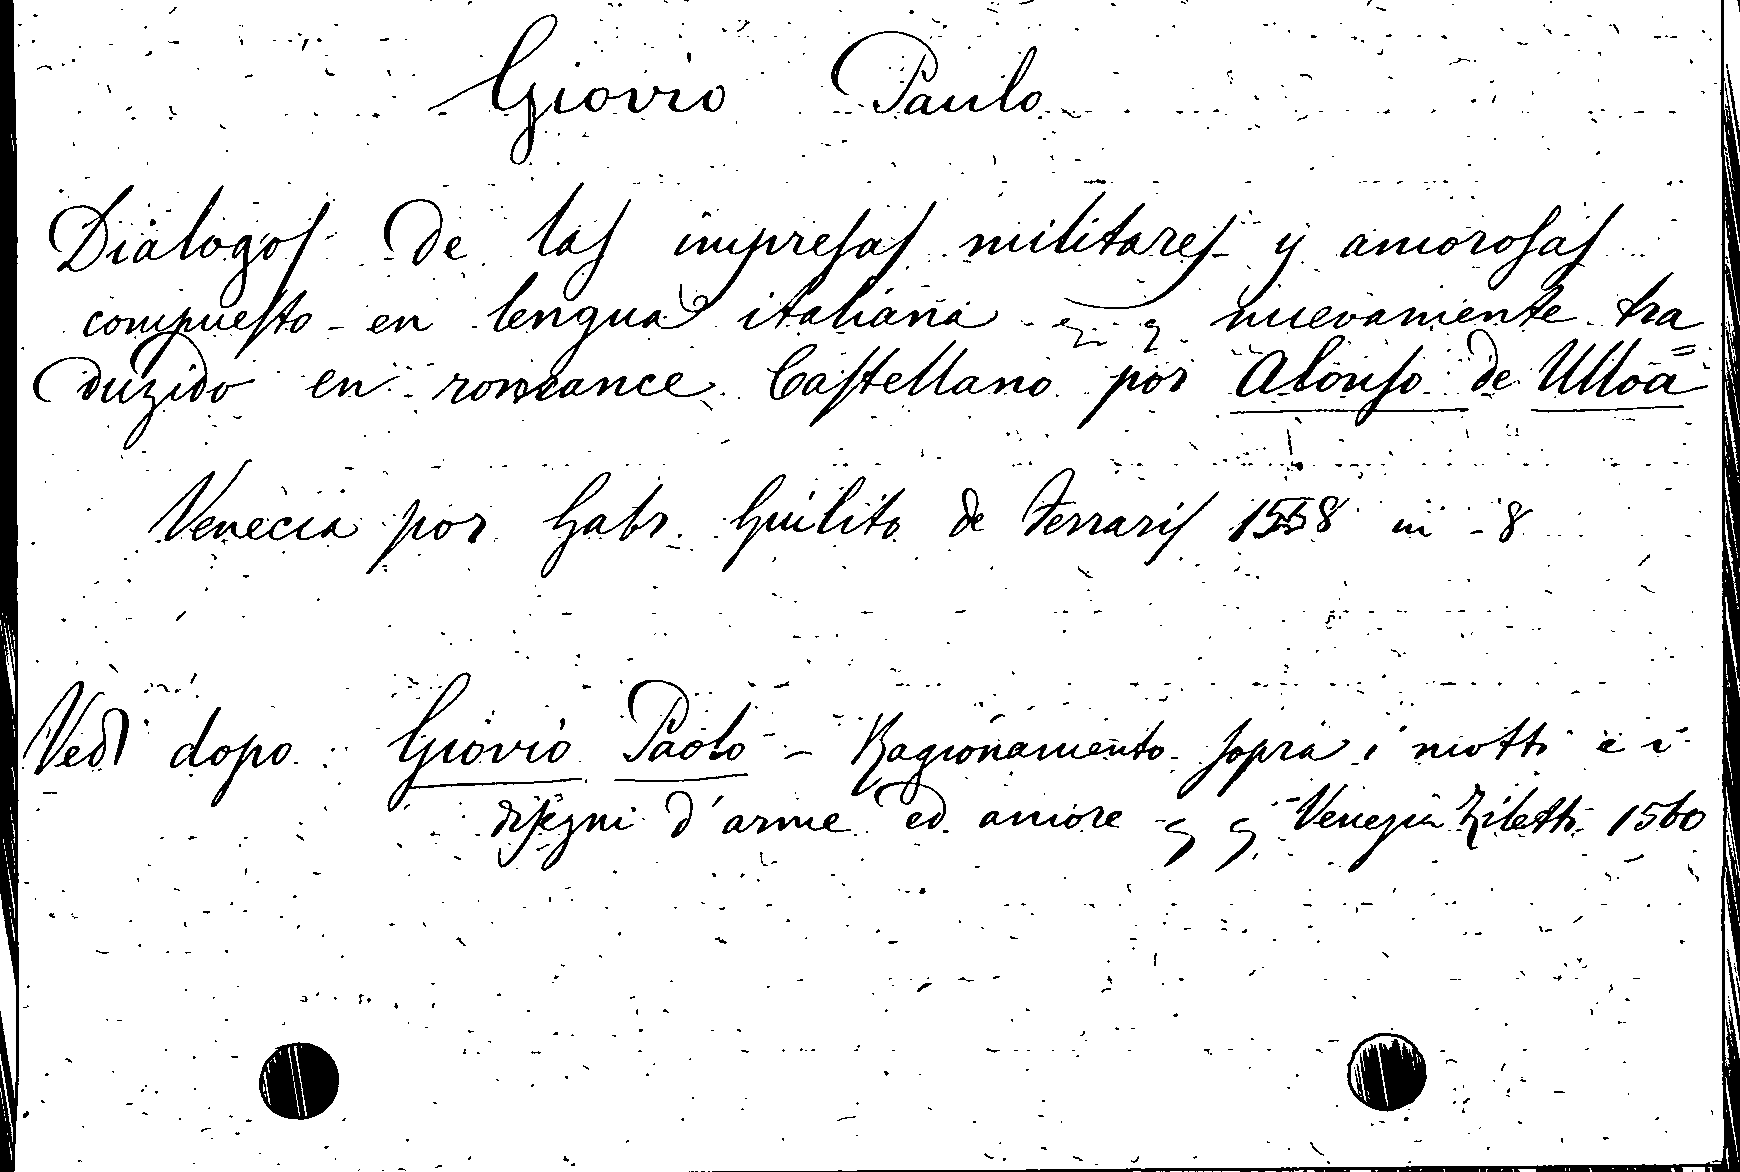 Giovio Paulo
Dialogos de las impresas militares y amorosas
compuesto en lengua italiana nuevamente tra=
duzido en romance Castellano por Alonso de Ulloa
Venecia por Gabr. Guilito de Ferraris 1558 in 8
Vedi dopo: Giovio Paolo - Ragionamento sopra i motti e i
disegni d'arme ed amore Venezia Ziletti 1560